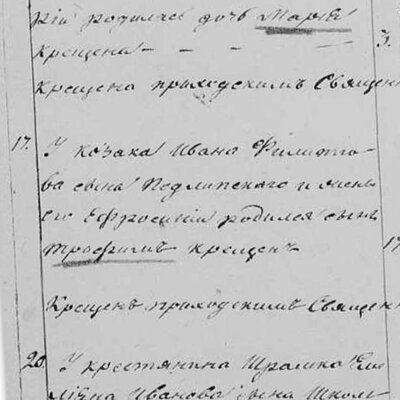 рiи родилась дочь Марiя
крещена
крещена приходскимъ Священ
3.
17. У козака Ивана Филипо-
ва сына Педлипского и жены
его Ефросинiи родился сынъ
Трофимъ крещенъ
17
Крещенъ приходскимъ Священ
20. У крестянина
Иванова сына Школь